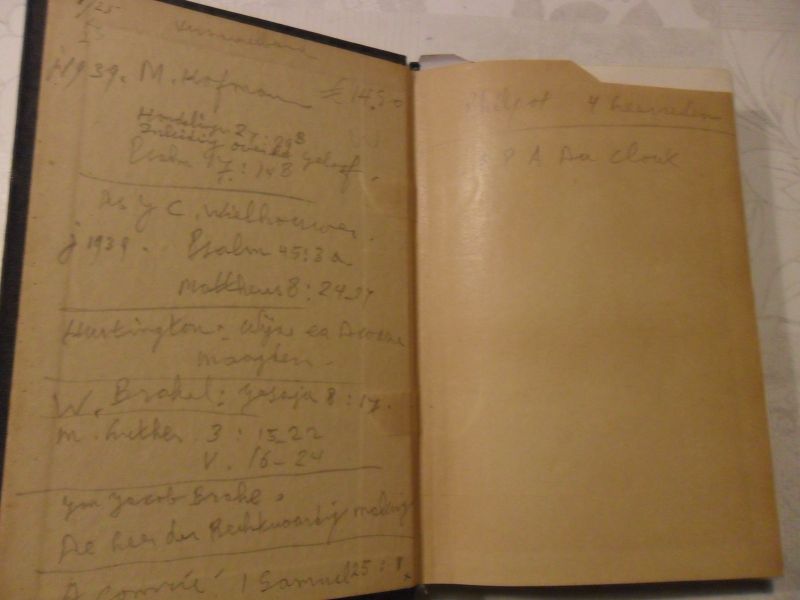 j 1939. M. Hofman 14.50
Handelingen 27:29B
Inleiding over het geloof.
Psalm 97
7:14B
Ds J C. Wielhouwer.
j 1939. Psalm 45:3a
Mattheus 8:24-27
Huntington: Wijze en Dwaze
maagden.
W. Brakel: Jesaja 8:17.
M. Luther. 3:15-22
V. 16-24
Jan Jacob Brahe.
De Heer der Rechtvaardig making
A Comrie: 1 Samuel 25:
Philpot 4 leerreden